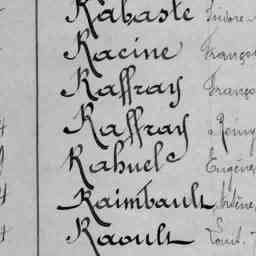 Rabaste Isidore
Racine Françoi
Raffray Franço
Raffray Rémy
Rahuel Eugène
Raimbault
Raoult Louis